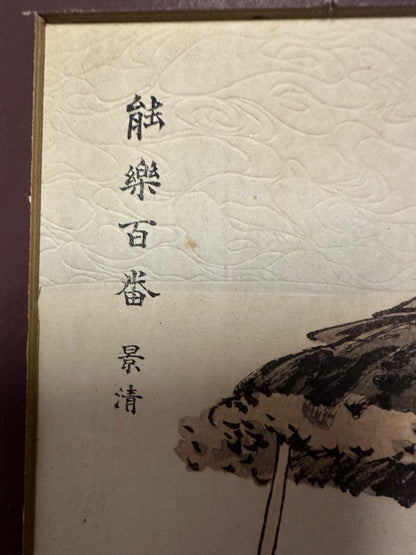 能樂百番 景清